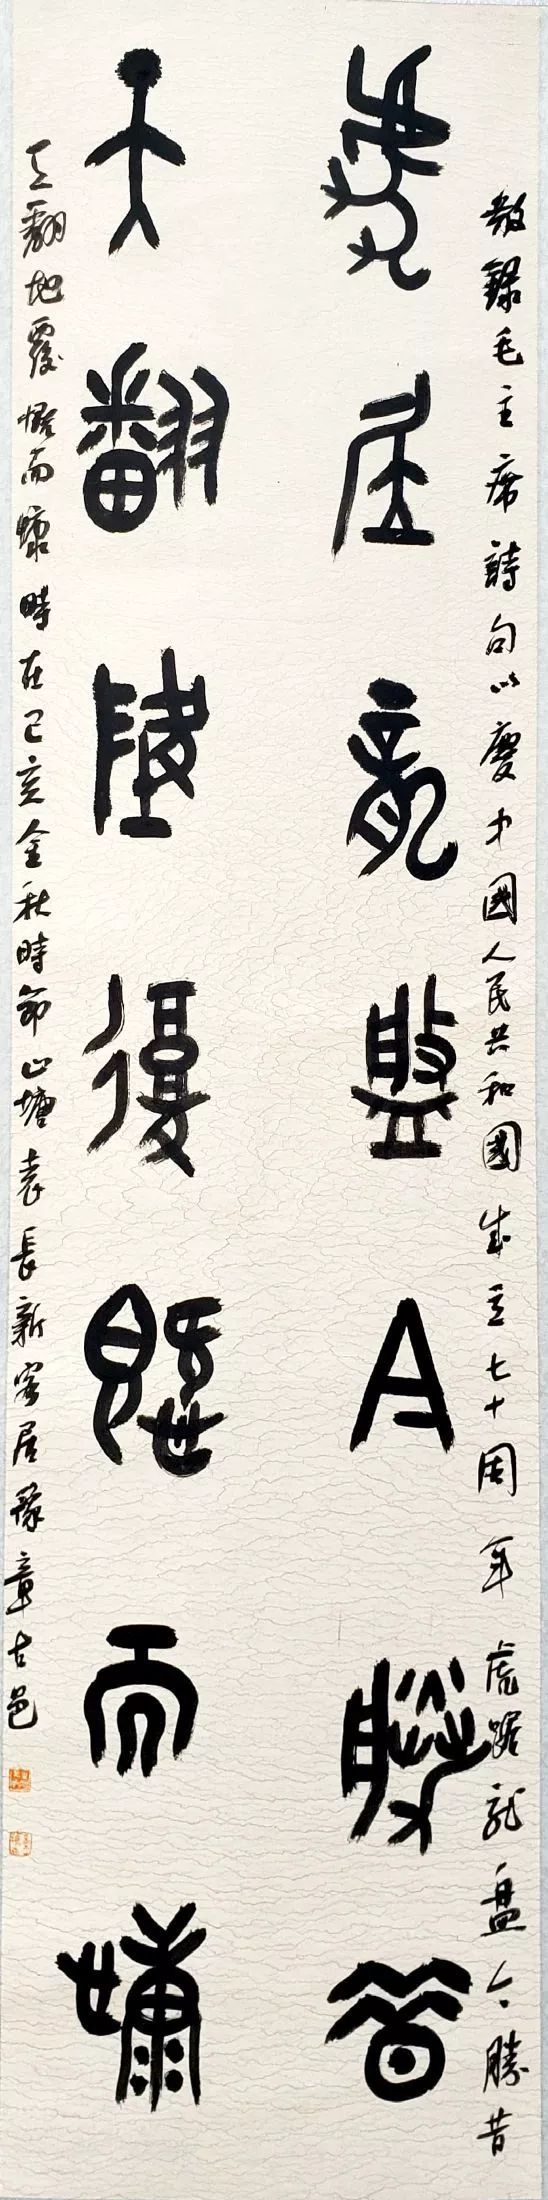 敬錄毛主席詩句以慶中國人民共和國成立七十周年虎踞龍盤今勝昔
虎踞龍盤今勝昔
天翻地覆慨而慷
天翻地覆慨而慷時在己亥金秋時節山塘袁長新客居豫章古邑